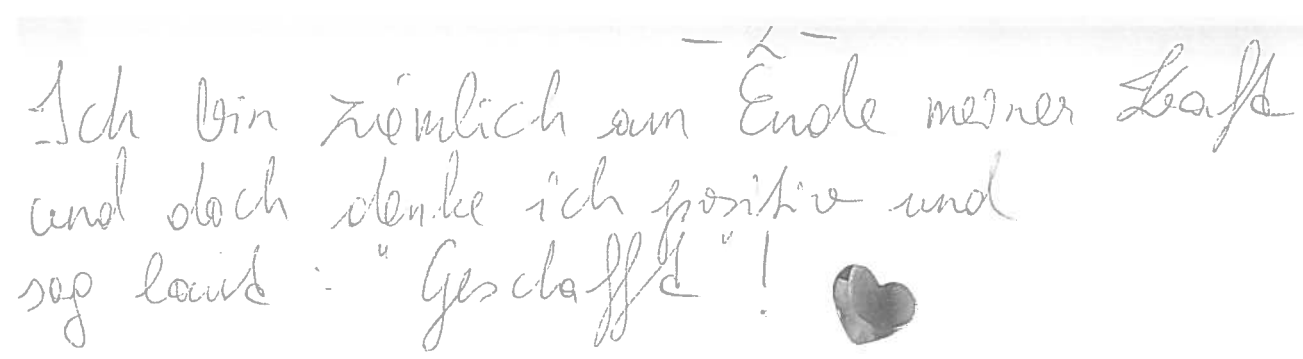 - 2 -
Ich bin ziemlich am Ende meiner Kraft
und doch denke ich positiv und
sag laut : "Geschafft"!